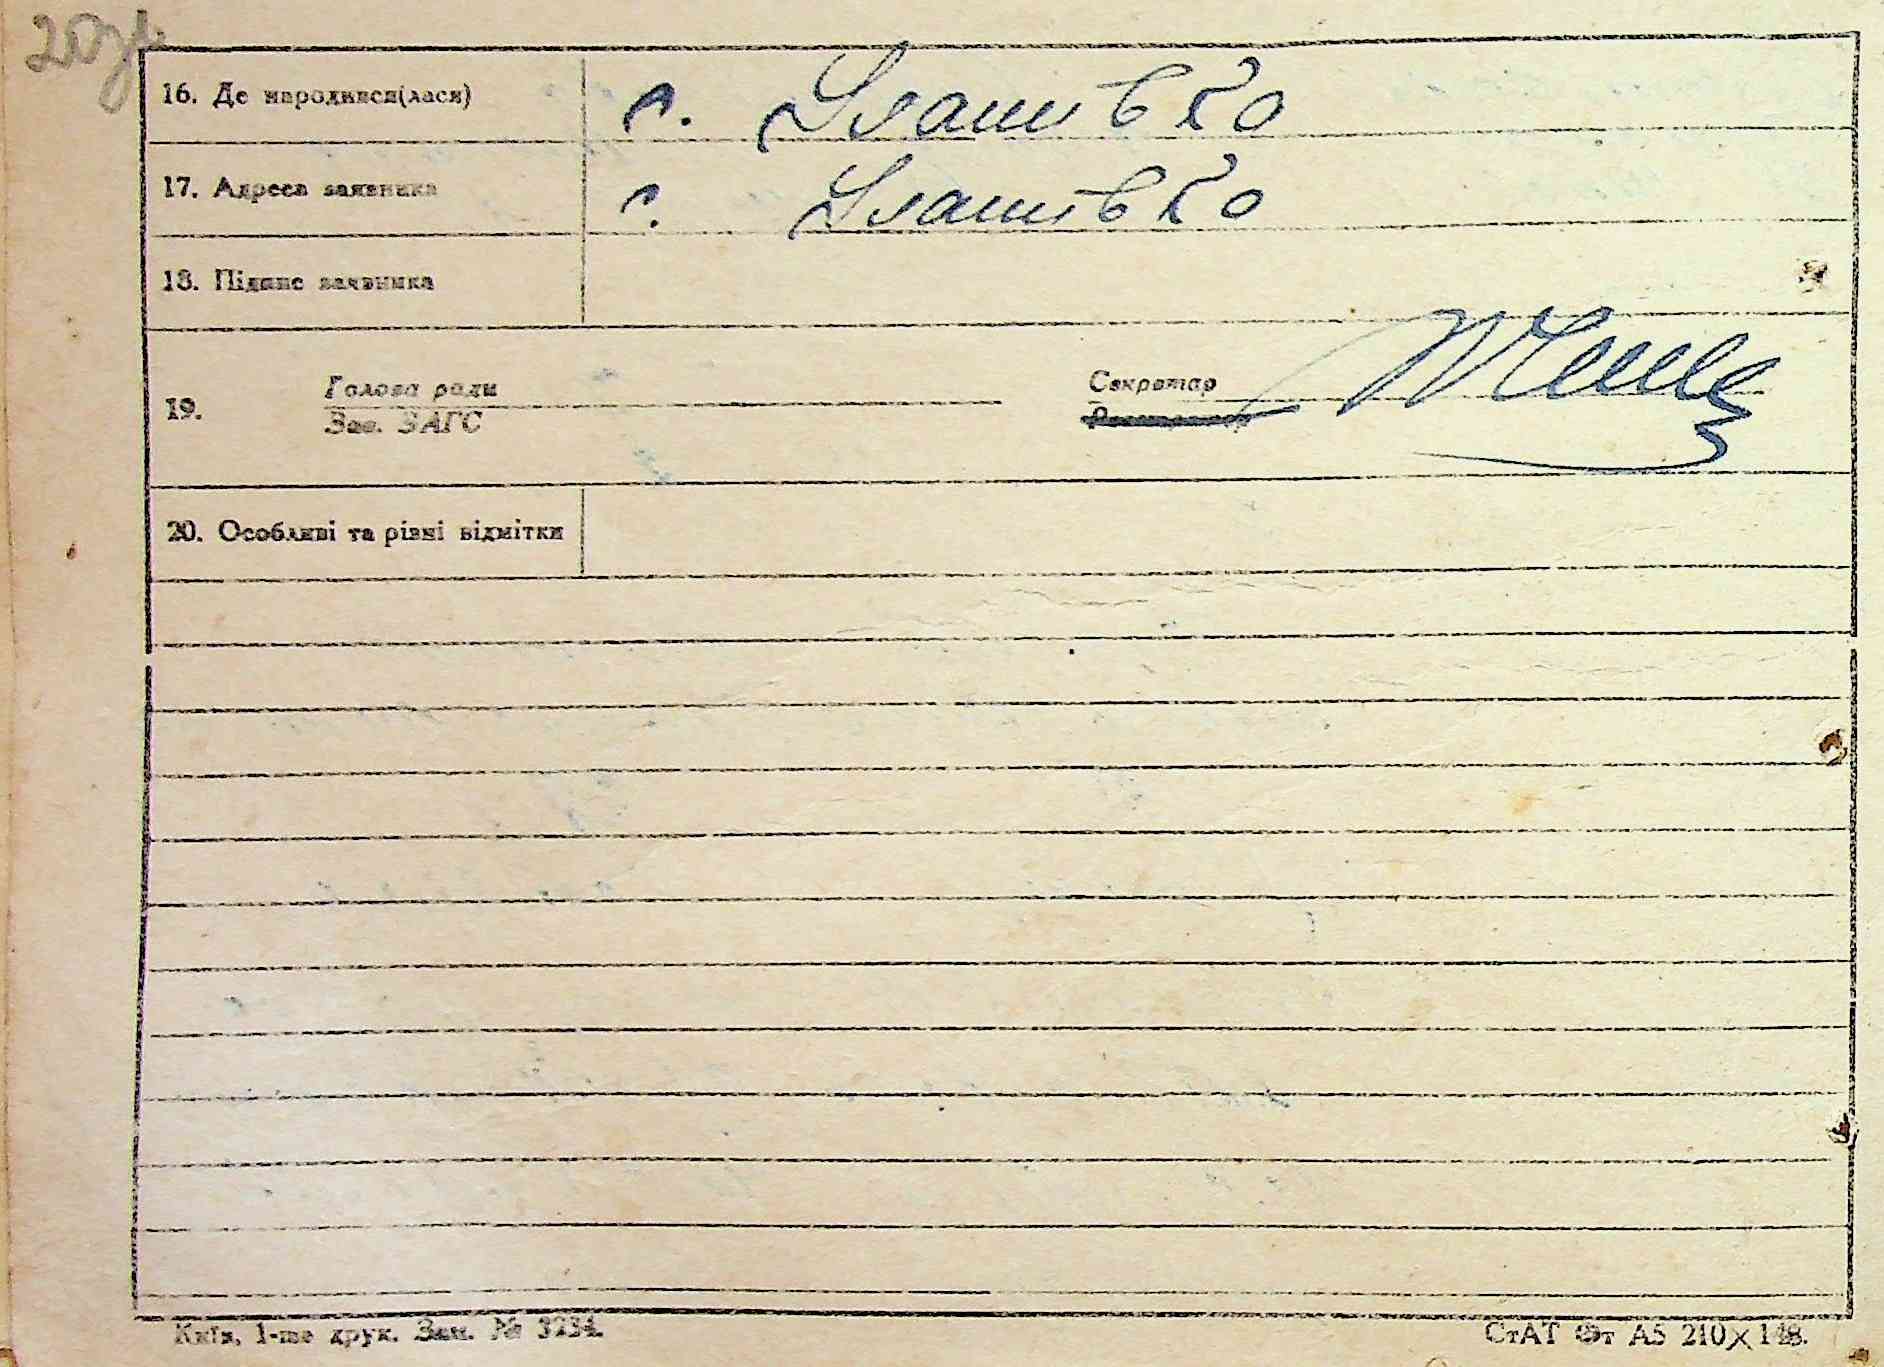 20зв
16. Де народився(лася) с. Уланівка
17. Адреса заявника с. Уланівка
18. Підпис заявника
Голова ради Секретар
19.
Зав. ЗАГС
20. Особливі та різні відмітки
Київ, 1-ше друк. Зам. № 3234.
СтАТ Фт А5 210×148.